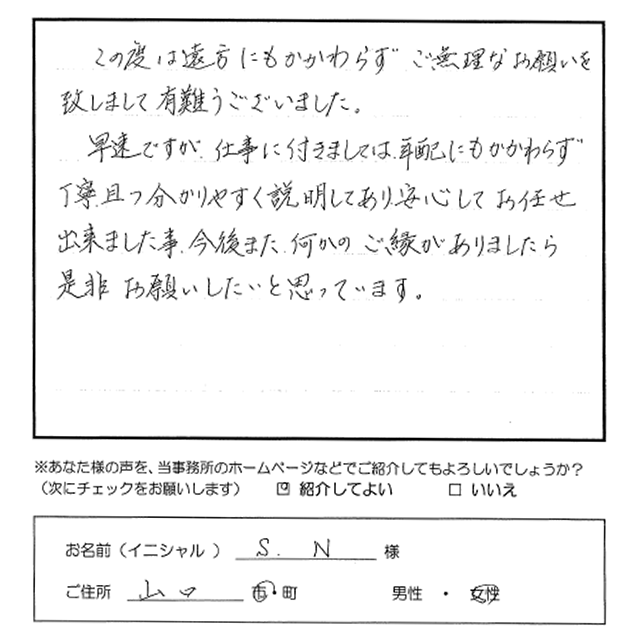 この度は遠方にもかかわらずご無理なお願いを
致しまして有難うございました。
早速ですが、仕事に付きましては、年配にもかかわらず
丁寧、且つ分かりやすく説明してあり、安心してお任せ
出来ました事、今後また、何かのご縁がありましたら
是非お願いしたいと思っています。
※あなた様の声を、当事務所のホームページなどでご紹介してもよろしいでしょうか?
(次にチェックをお願いします) ☑ 紹介してよい □ いいえ
お名前(イニシャル) S. N 様
ご住所 山口 市・町 男性 ・ 女性